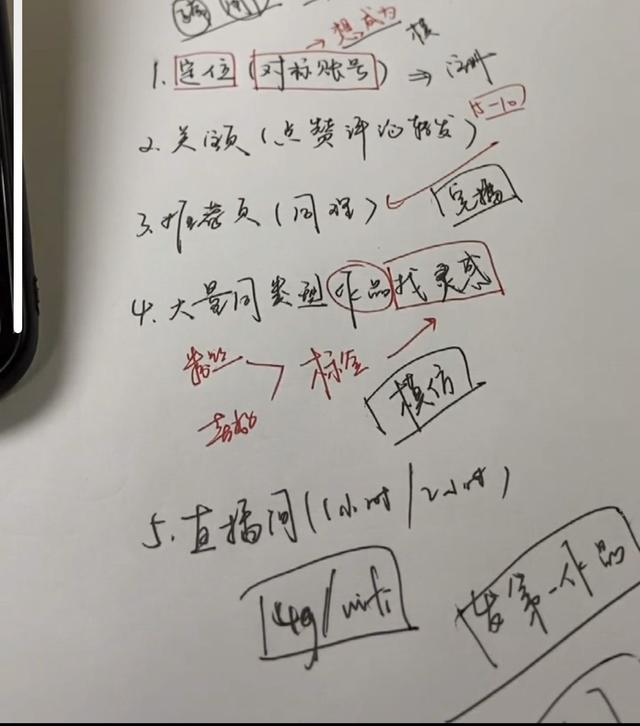 想成为
1. 定位 (对标账号) ⇒ 注册
2. 关注页 (点赞评论转发) 15-10
3. 推荐页 (同程)
完播
4. 大量同类型作品找灵感
粉丝
标签
模仿
5. 直播间 (1小时/2小时)
4g/wifi
发第一作品